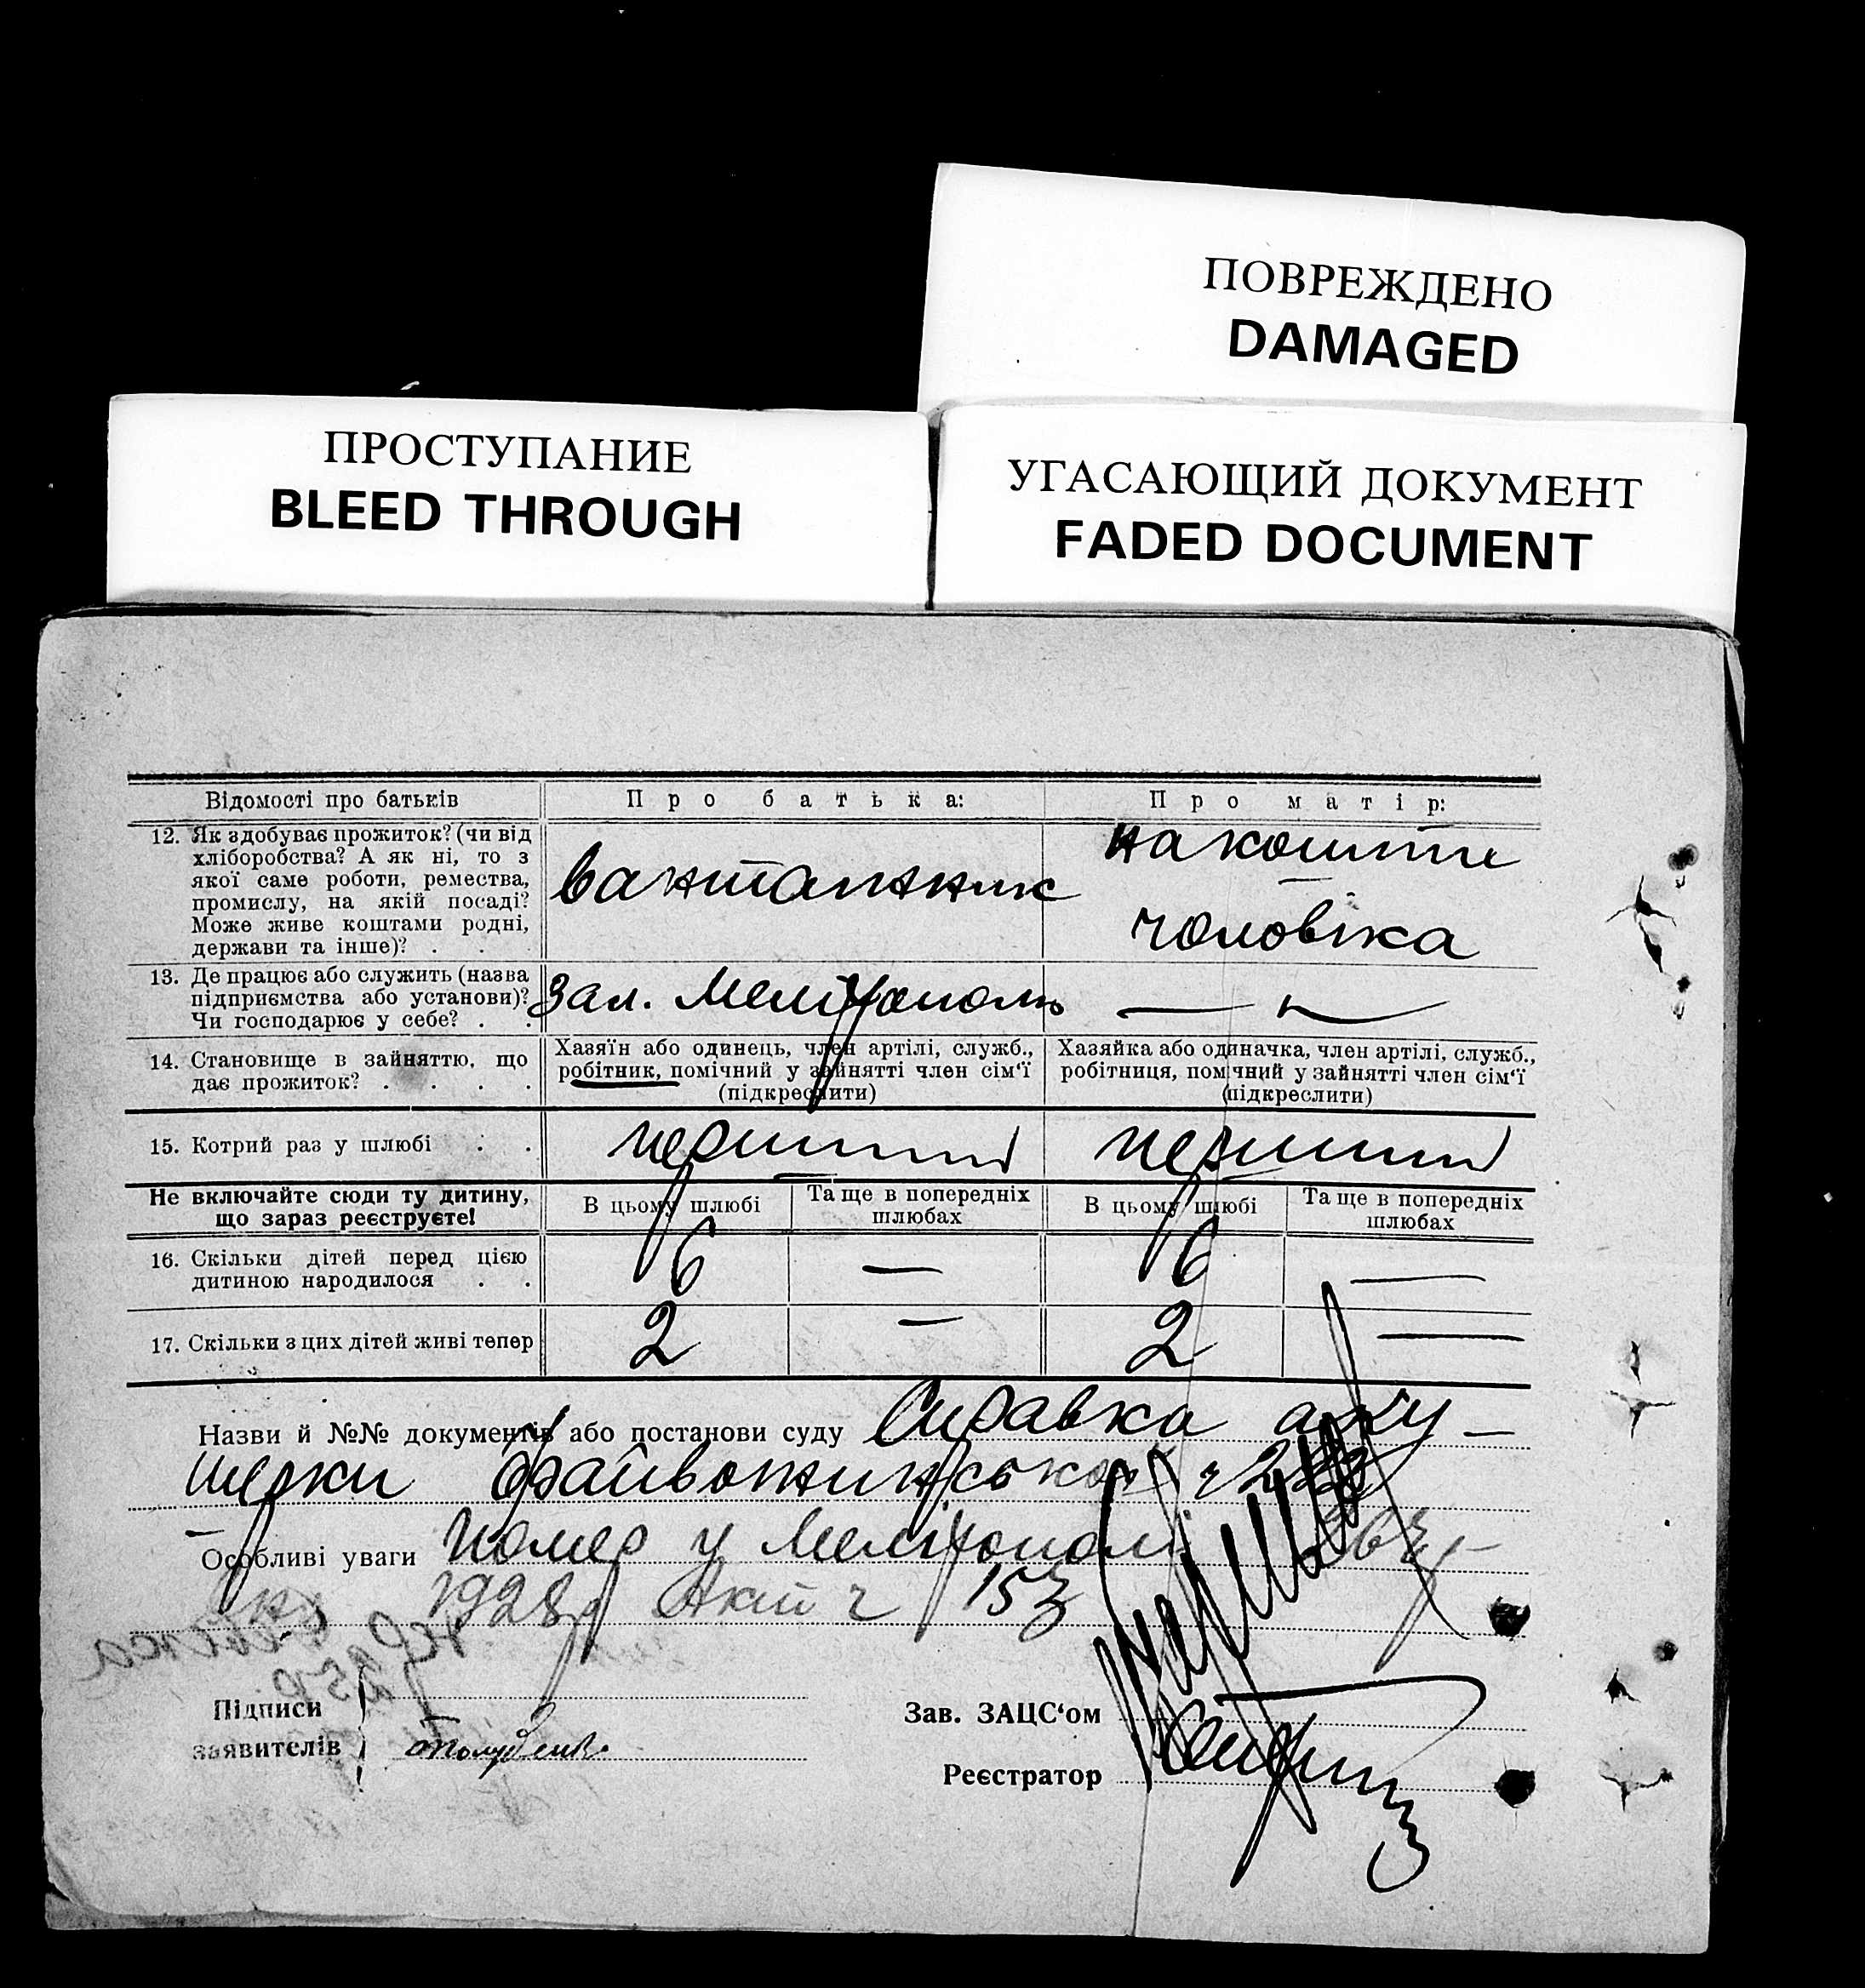 ПОВРЕЖДЕНО
DAMAGED
ПРОСТУПАНИЕ
BLEED THROUGH
УГАСАЮЩИЙ ДОКУМЕНТ
FADED DOCUMENT
Відомості про батьків
Про батька:
Про матір:
12. Як здобуває прожиток? (чи від
хліборобства? А як ні, то з
якої саме роботи, ремества,
промислу, на якій посаді?
Може живе коштами родні,
держави та інше)? . .
вантажник
на кошти
чоловіка
13. Де працює або служить (назва
підприємства або установи)?
Чи господарює у себе? . .
Зал. Мелітополь
— " —
14. Становище в зайняттю, що
дає прожиток? . . . .
Хазяїн або одинець, член артілі, служб.,
робітник, помічний у зайнятті член сім'ї
(підкреслити)
Хазяйка або одиначка, член артілі, служб.,
робітниця, помічний у зайнятті член сім'ї
(підкреслити)
15. Котрий раз у шлюбі . .
перший
перший
Не включайте сюди ту дитину,
що зараз реєструєте!
В цьому шлюбі
Та ще в попередніх
шлюбах
В цьому шлюбі
Та ще в попередніх
шлюбах
16. Скільки дітей перед цією
дитиною народилося . .
6
—
6
—
17. Скільки з цих дітей живі тепер
2
—
2
—
Назви й №№ документів або постанови суду Справка аку-
шерки
Особливі уваги помер у Мелітополі
1928р Акт ч 153
Підписи
заявителів
Зав. ЗАЦС'ом
Реєстратор